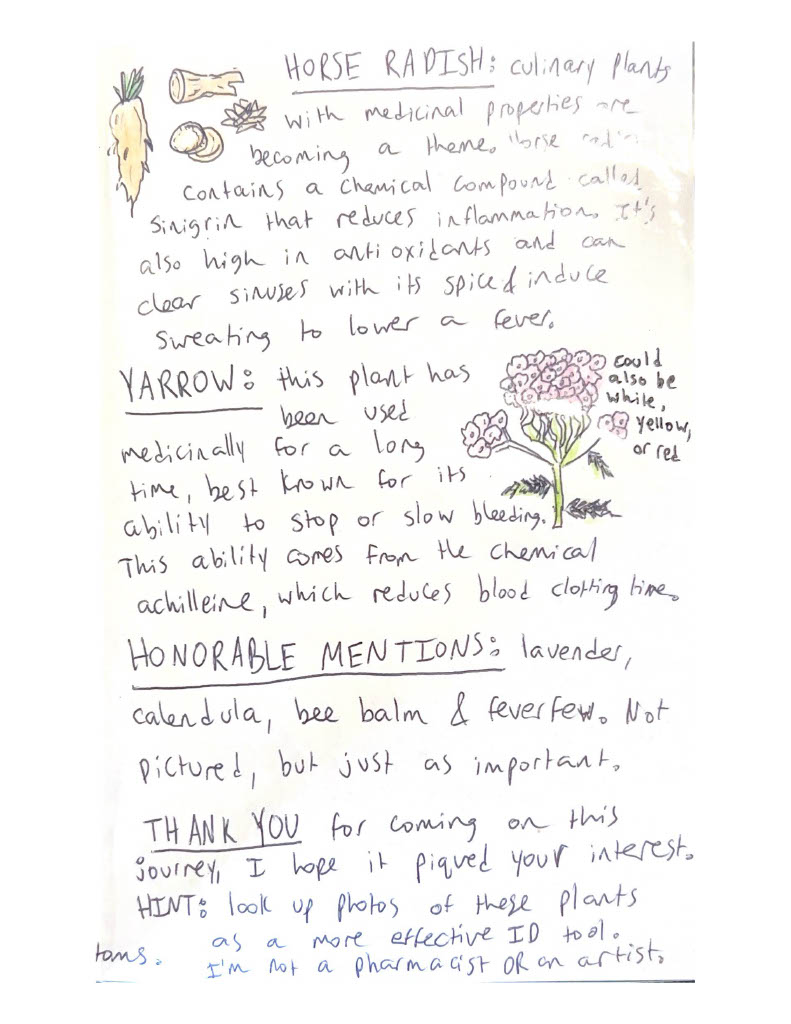 HORSE RADISH: culinary plants
with medicinal properties are
becoming a theme. Horse radish
contains a chemical compound called
sinigrin that reduces inflammation. It's
also high in anti oxidants and can
clear sinuses with its spice & induce
sweating to lower a fever.
YARROW: this plant has
been used
medicinally for a long
time, best known for its
ability to stop or slow bleeding.
This ability comes from the chemical
achilleine, which reduces blood clotting time.
could
also be
white,
yellow,
or red
HONORABLE MENTIONS: lavender,
calendula, bee balm & feverfew. Not
pictured, but just as important.
THANK YOU for coming on this
journey, I hope it piqued your interest.
HINT: look up photos of these plants
as a more effective ID tool.
I'm not a pharmacist OR an artist.
toms.